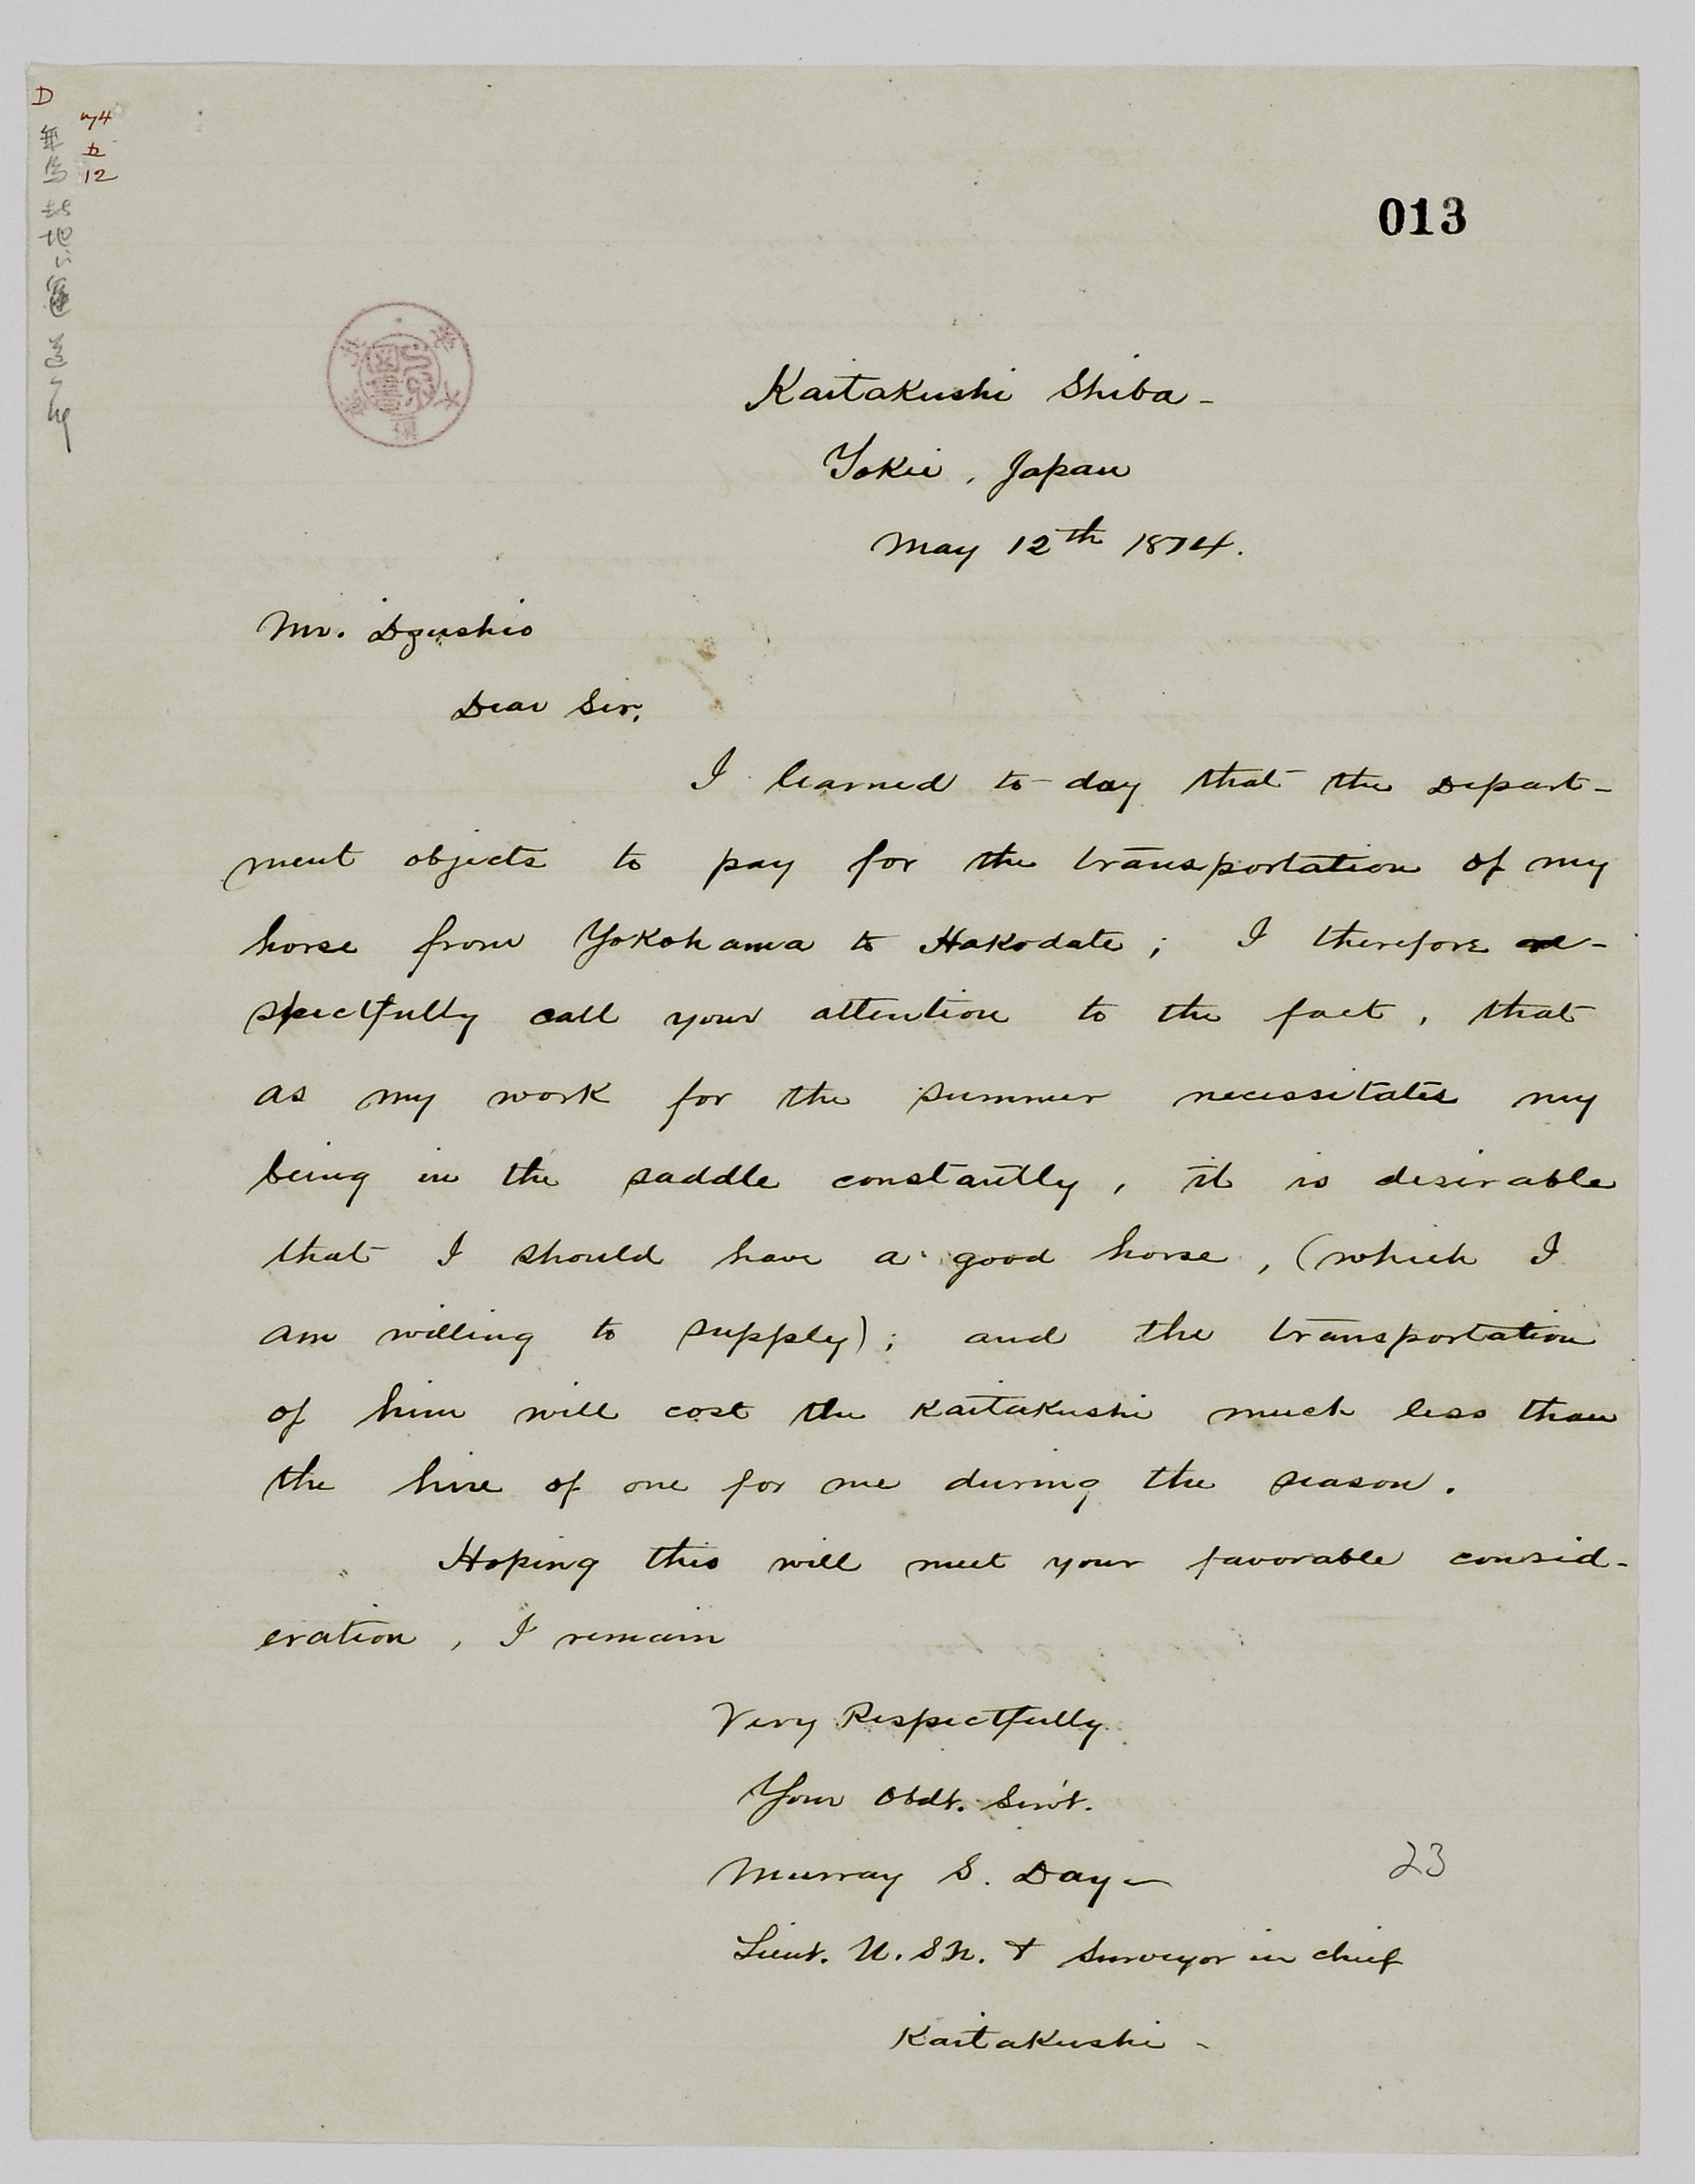 D
74
D
12
013
Kaitakushi Shiba -
Tokei, Japan
May 12th 1874.
Mr. Dzushio
Dear Sir,
I learned to-day that the Depart-
ment objects to pay for the transportation of my
horse from Yokohama to Hakodate; I therefore re-
spectfully call your attention to the fact, that
as my work for the summer necessitates my
being in the saddle constantly, it is desirable
that I should have a good horse, (which I
am willing to supply); and the transportation
of him will cost the Kaitakushi much less than
the hire of one for me during the season.
Hoping this will meet your favorable consid-
eration, I remain
Very Respectfully
Your Obdt. Serv't.
Murray S. Day -
23
Lieut. U.S.N. & Surveyor in chief
Kaitakushi -